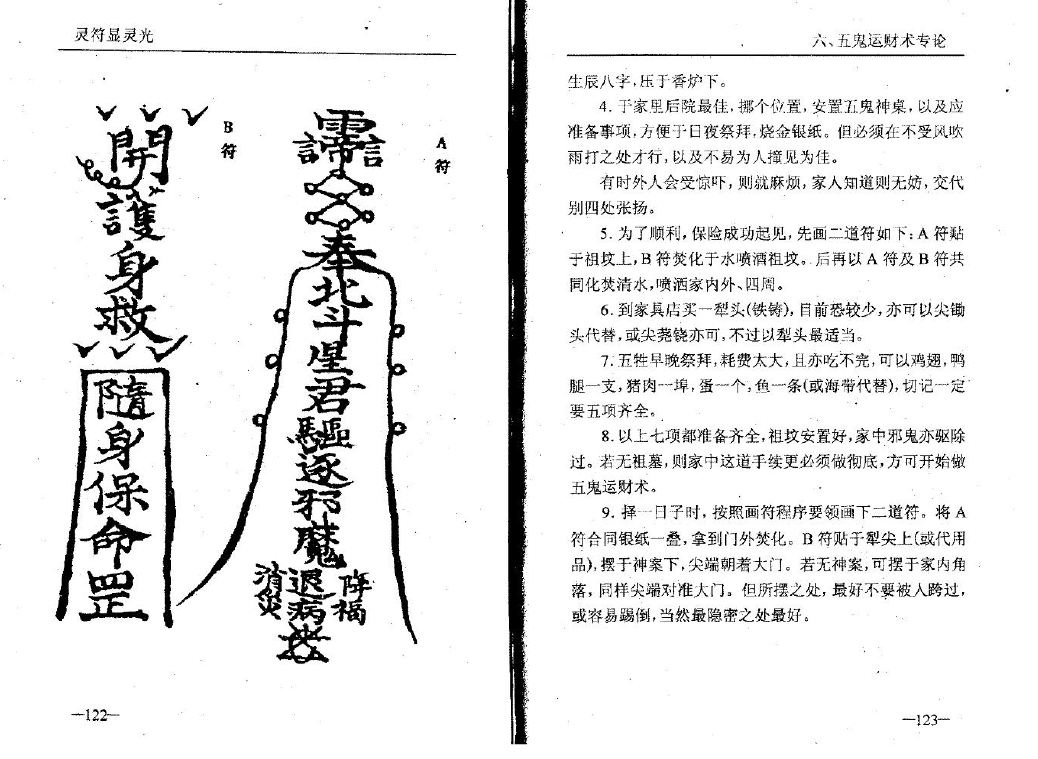 灵符显灵光
A符
奉北斗星君驅逐邪魔
降福
退病
消災
B符
開護身救
隨身保命罡
—122—
六、五鬼运财术专论
生辰八字,压于香炉下。
4. 于家里后院最佳,挪个位置,安置五鬼神桌,以及应
准备事项,方便于日夜祭拜,烧金银纸。但必须在不受风吹
雨打之处才行,以及不易为人撞见为佳。
有时外人会受惊吓,则就麻烦,家人知道则无妨,交代
别四处张扬。
5. 为了顺利,保险成功起见,先画二道符如下:A 符贴
于祖坟上,B 符焚化于水喷洒祖坟。后再以 A 符及 B 符共
同化焚清水,喷洒家内外、四周。
6. 到家具店买一犁头(铁铸),目前恐较少,亦可以尖锄
头代替,或尖荛铙亦可,不过以犁头最适当。
7. 五牲早晚祭拜,耗费太大,且亦吃不完,可以鸡翅,鸭
腿一支,猪肉一埠,蛋一个,鱼一条(或海带代替),切记一定
要五项齐全。
8. 以上七项都准备齐全,祖坟安置好,家中邪鬼亦驱除
过。若无祖墓,则家中这道手续更必须做彻底,方可开始做
五鬼运财术。
9. 择一日子时,按照画符程序要领画下二道符。将 A
符合同银纸一叠,拿到门外焚化。B 符贴于犁尖上(或代用
品),摆于神案下,尖端朝着大门。若无神案,可摆于家内角
落,同样尖端对准大门。但所摆之处,最好不要被人跨过,
或容易踢倒,当然最隐密之处最好。
—123—